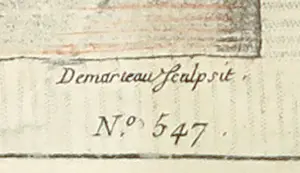 Demarteau Sculpsit.
N.º 547.